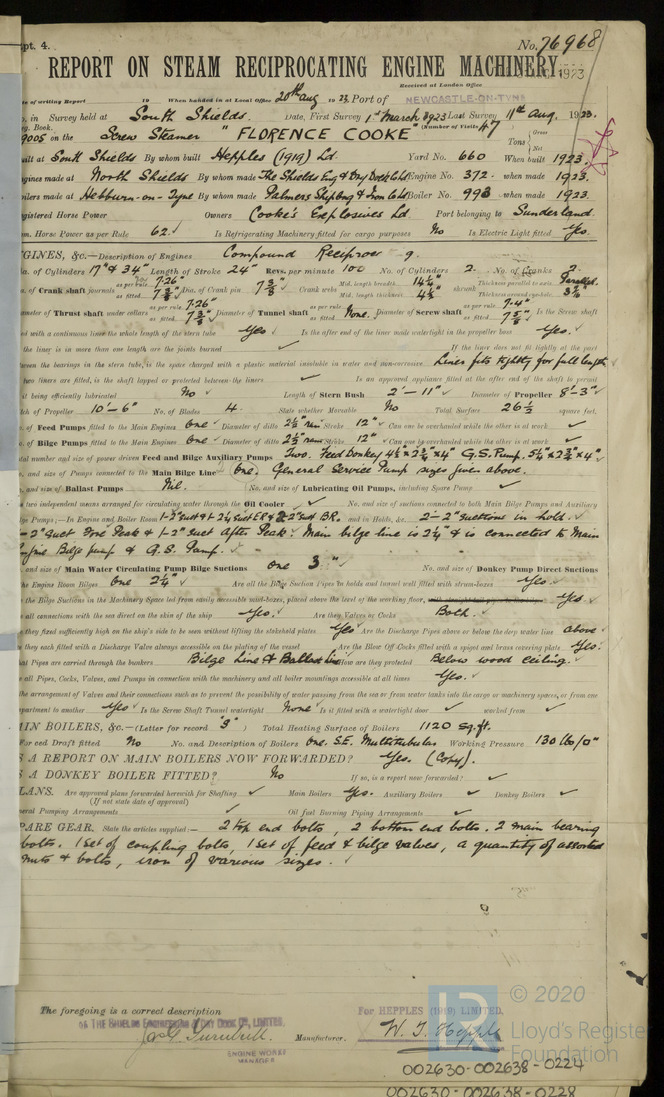 pt. 4.
No. 76968
REPORT ON STEAM RECIPROCATING ENGINE MACHINERY.
1923
Received at London Office
te of writing Report 19 When handed in at Local Office 20th Aug 1923 Port of NEWCASTLE-ON-TYNE
in Survey held at South Shields. Date, First Survey 1st March 1923 Last Survey 11th Aug. 1923.
g. Book. (Number of Visits 47
9005 on the Screw Steamer "FLORENCE COOKE" Tons Gross Net
uilt at South Shields By whom built Hepples (1919) Ld. Yard No. 660 When built 1923.
ngines made at North Shields By whom made The Shields Eng & Dry Dock Co Ld Engine No. 372. when made 1923.
oilers made at Hebburn-on-Tyne By whom made Palmers Shipbng & Iron Co Ld Boiler No. 993 when made 1923.
gistered Horse Power Owners Cooke's Explosives Ld Port belonging to Sunderland.
m. Horse Power as per Rule 62 Is Refrigerating Machinery fitted for cargo purposes No Is Electric Light fitted Yes.
GINES, &c.—Description of Engines Compound Reciprocg.
o. of Cylinders 17" & 34" Length of Stroke 24" Revs. per minute 100 No. of Cylinders 2. No. of Cranks 2.
a. of Crank shaft journals as per rule 7.26" as fitted 7 3/8" Dia. of Crank pin 7 3/8" Crank webs Mid. length breadth 14 1/4" Mid. length thickness 4 1/2" shrunk Thickness parallel to axis Parallel. Thickness around eyehole 3 5/16"
ameter of Thrust shaft under collars as per rule 7.26" as fitted 7 3/8" Diameter of Tunnel shaft as per rule as fitted None. Diameter of Screw shaft as per rule 7.4" as fitted 7 5/8" Is the Screw shaft
ed with a continuous liner the whole length of the stern tube Yes Is the after end of the liner made watertight in the propeller boss Yes.
the liner is in more than one length are the joints burned If the liner does not fit tightly at the part
ween the bearings in the stern tube, is the space charged with a plastic material insoluble in water and non-corrosive Liner fits tightly for full length
two liners are fitted, is the shaft lapped or protected between the liners Is an approved appliance fitted at the after end of the shaft to permit
it being efficiently lubricated No Length of Stern Bush 2'-11" Diameter of Propeller 8'-3"
tch of Propeller 10'-6" No. of Blades 4 State whether Moveable No Total Surface 26 1/2 square feet.
o. of Feed Pumps fitted to the Main Engines One Diameter of ditto 2 1/2" ram Stroke 12" Can one be overhauled while the other is at work
o. of Bilge Pumps fitted to the Main Engines One Diameter of ditto 2 1/2" ram Stroke 12" Can one be overhauled while the other is at work
tal number and size of power driven Feed and Bilge Auxiliary Pumps Two. Feed Donkey 4 1/2" x 2 3/4" x 4" G.S. Pump. 5 1/4" x 2 3/4" x 4"
o. and size of Pumps connected to the Main Bilge Line One. General Service Pump sizes given above.
o. and size of Ballast Pumps Nil. No. and size of Lubricating Oil Pumps, including Spare Pump
e two independent means arranged for circulating water through the Oil Cooler No. and size of suctions connected to both Main Bilge Pumps and Auxiliary
lge Pumps;—In Engine and Boiler Room 1-2" suct & 1-2 1/4" suct ER & 2-2" suct BR. and in Holds, &c. 2-2" suctions in hold.
-2" suct Fore Peak & 1-2" suct After Peak. Main bilge line is 2 1/4" & is connected to Main
Engine Bilge pump & G.S. Pump.
and size of Main Water Circulating Pump Bilge Suctions one 3" No. and size of Donkey Pump Direct Suctions
he Engine Room Bilges One 2 1/4" Are all the Bilge Suction Pipes in holds and tunnel well fitted with strum-boxes Yes
the Bilge Suctions in the Machinery Space led from easily accessible mud-boxes, placed above the level of the working floor, Yes
all connections with the sea direct on the skin of the ship Yes. Are they Valves or Cocks Both.
they fixed sufficiently high on the ship's side to be seen without lifting the stokehold plates Yes Are the Discharge Pipes above or below the deep water line above
they each fitted with a Discharge Valve always accessible on the plating of the vessel Are the Blow Off Cocks fitted with a spigot and brass covering plate Yes.
at Pipes are carried through the bunkers Bilge Line & Ballast Line How are they protected Below wood ceiling.
all Pipes, Cocks, Valves, and Pumps in connection with the machinery and all boiler mountings accessible at all times Yes.
the arrangement of Valves and their connections such as to prevent the possibility of water passing from the sea or from water tanks into the cargo or machinery spaces, or from one
partment to another Yes Is the Screw Shaft Tunnel watertight None Is it fitted with a watertight door worked from
IN BOILERS, &c.—(Letter for record "S") Total Heating Surface of Boilers 1120 sq.ft.
Forced Draft fitted No No. and Description of Boilers One. S.E. Multitubular Working Pressure 130 lbs/□"
S A REPORT ON MAIN BOILERS NOW FORWARDED? Yes. (Copy).
S A DONKEY BOILER FITTED? No If so, is a report now forwarded?
LANS. Are approved plans forwarded herewith for Shafting Main Boilers Yes. Auxiliary Boilers Donkey Boilers
(If not state date of approval)
eral Pumping Arrangements Oil fuel Burning Piping Arrangements
PARE GEAR. State the articles supplied:— 2 top end bolts, 2 bottom end bolts. 2 main bearing
bolts. 1 set of coupling bolts, 1 set of feed & bilge valves, a quantity of assorted
nuts & bolts, iron of various sizes.
The foregoing is a correct description
For HEPPLES (1919) LIMITED.
THE SHIELDS ENGINEERING & DRY DOCK CO., LIMITED.
Turnbull. Manufacturer. W. T. Hepple
ENGINE WORKS MANAGER
© 2020
LR
Lloyd's Register
Foundation
002630-002638-0224
002630-002638-0228